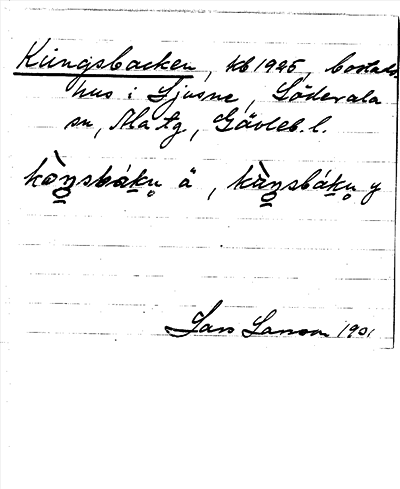 Kungsbacken, kb 1925, bostads-
hus i Ljusne, Söderala
sn, Ala tg, Gävleb. l.
kòŋsbákn̥ ä, kùŋsbákn̥ y
Lars Larsson 1901